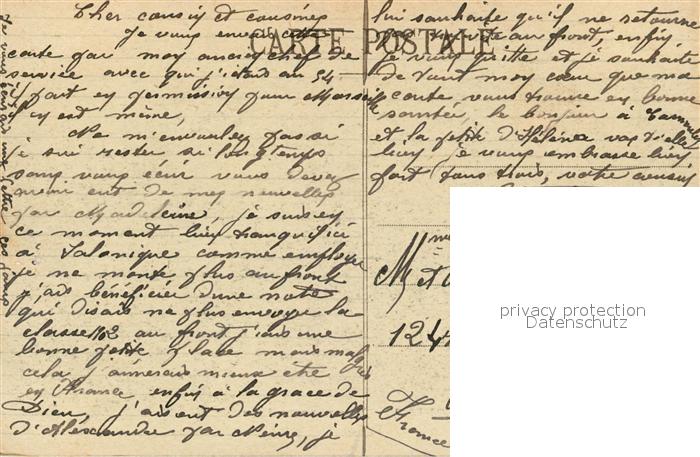 Cher cousin et cousines
Je vous envoi cette
CARTE POSTALE
carte par mon ancien chef de
service avec qui j'étais au 54
il part en permission pour Marseille
y en est même,
Ne m'envoulez pas si
je sui rester si longtemps
sans vous écrir vous devez
avoir eut de mes nouvelles
par Madeleine, je suis en
ce moment bien tranquil ici
à Salonique comme employer
je ne monte plus au front
j'ais bénéficier d'une note
qui disais ne plus envoyer la
classe au front j'ais une
bonne petite place mais malgré
cela j'aimerais mieux être
en France enfin à la grace de
Dieu, j'ai eut des nouvelles
d'Alexandre par je
lui souhaite qu'il ne retourne
au front, enfin
je vous quitte et je souhaite
de tout mon cœur que ma
carte vous trouve en bonne
santée, le bonjour à
et la petite d'Hélène
bien je vous embrasse bien
fort tous trois, votre cousin
M et
124
France
privacy protection
Datenschutz